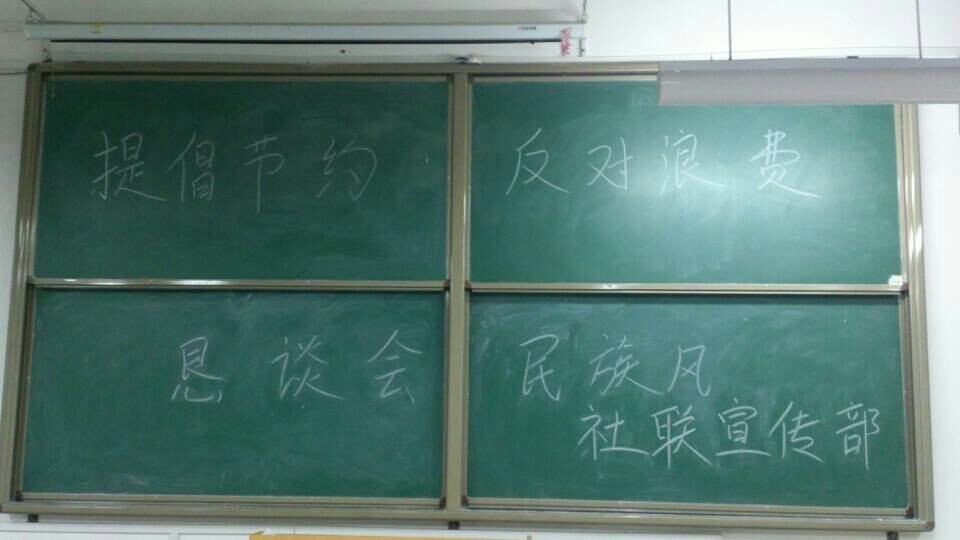 提倡节约 反对浪费
恳谈会 民族风
社联宣传部